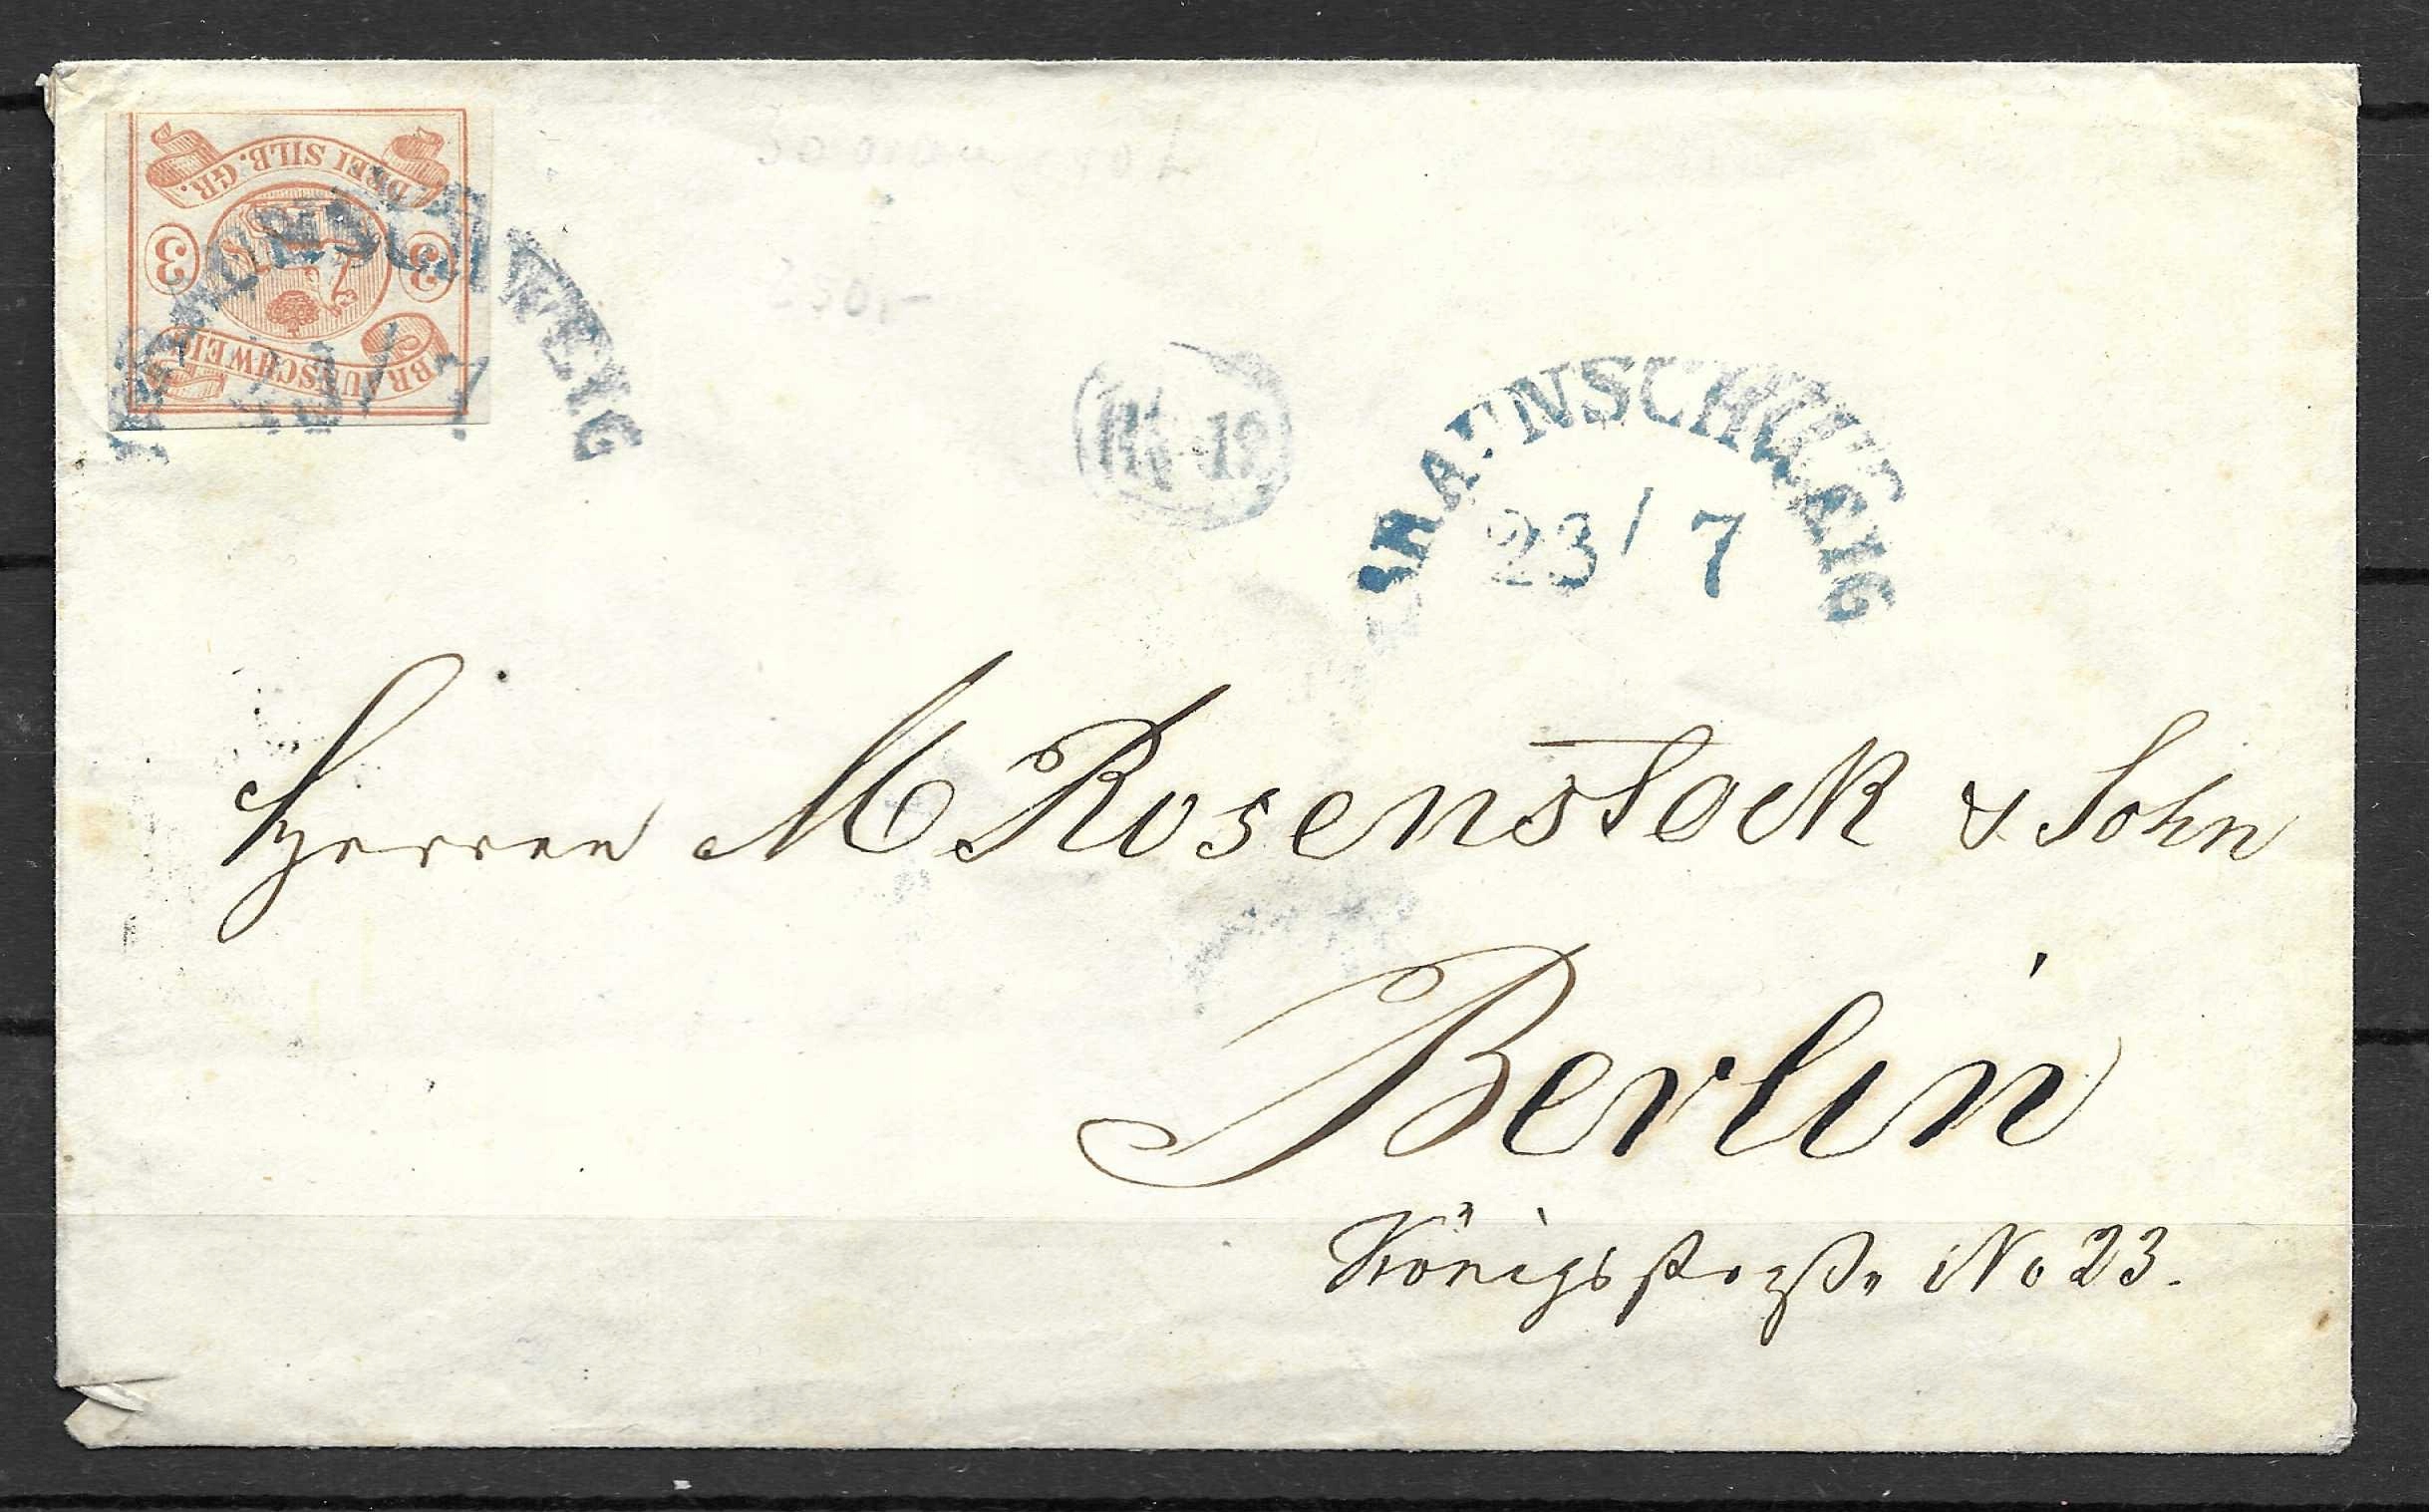 DREI SILB. GR.
3 3
BRAUNSCHWEIG
BRAUNSCHWEIG
23/7
250,-
BRAUNSCHWEIG
23/7
Herren M Rosenstock & Sohn
Berlin
Königsstraße No 23.